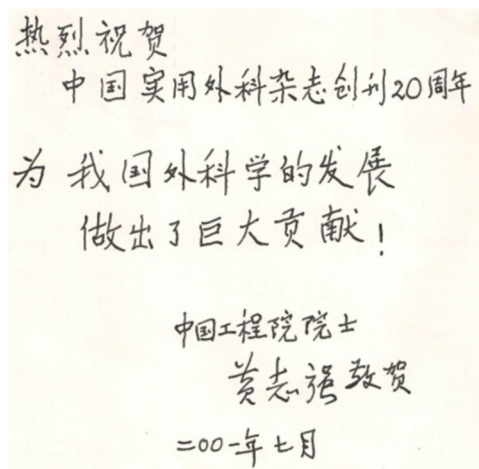 热烈祝贺
中国实用外科杂志创刊20周年
为我国外科学的发展
做出了巨大贡献!
中国工程院院士
黄志强敬贺
二00一年七月